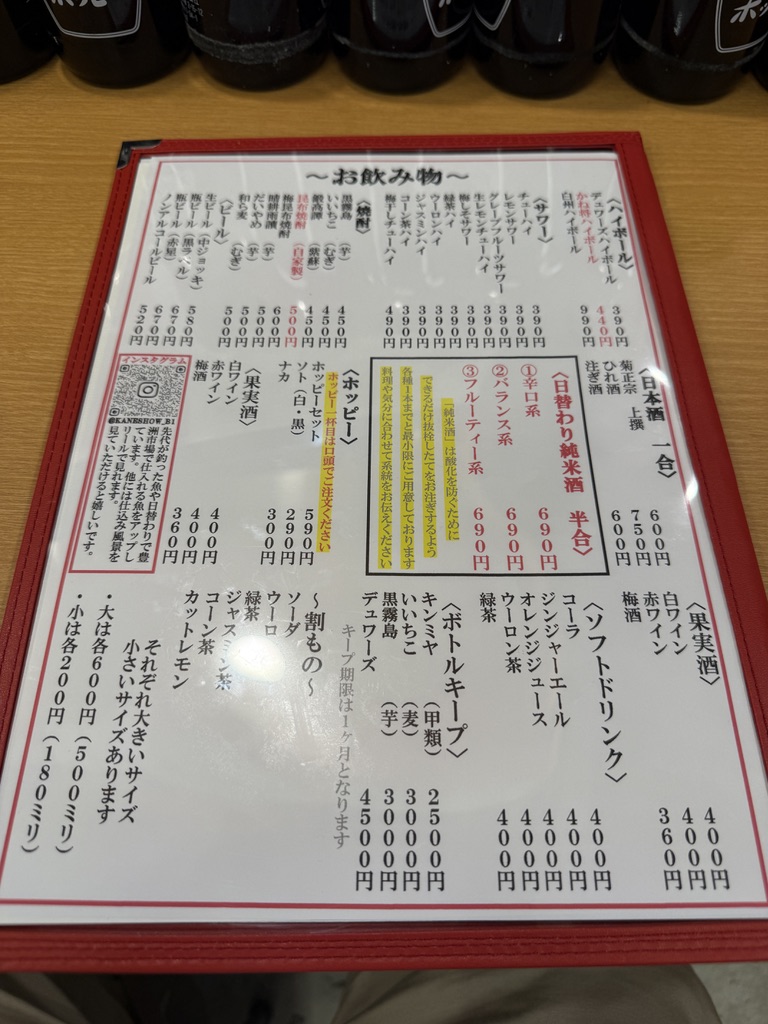 ～お飲み物～
〈ハイボール〉
デュワーズハイボール 390円
かね将ハイボール 440円
白州ハイボール 990円
〈サワー〉
チューハイ 390円
レモンサワー 390円
グレープフルーツサワー 390円
生レモンチューハイ 390円
梅しそサワー 390円
緑茶ハイ 390円
ウーロンハイ 390円
ジャスミンハイ 390円
コーン茶ハイ 390円
梅干しチューハイ 490円
〈焼酎〉
黒霧島 (芋) 450円
いいちこ (むぎ) 450円
鍛高譚 (紫蘇) 450円
昆布焼酎 (自家製) 500円
梅昆布焼酎 600円
晴耕雨讀 (芋) 500円
だいやめ (芋) 500円
和ら麦 (むぎ) 500円
〈ビール〉
生ビール (中ジョッキ) 580円
瓶ビール (黒ラベル) 670円
瓶ビール (赤星) 670円
ノンアルコールビール 520円
〈日本酒 一合〉
菊正宗 上撰 600円
ひれ酒 750円
注ぎ酒 600円
〈日替わり純米酒 半合〉
①辛口系 690円
②バランス系 690円
③フルーティー系 690円
「純米酒」は酸化を防ぐために
できるだけ抜栓したてをお注ぎするよう
各種1本までと最小限にご用意しております
料理や気分に合わせて系統をお伝えください
〈ホッピー〉
ホッピー一杯目は口頭でご注文ください
ホッピーセット 590円
ソト (白・黒) 290円
ナカ 300円
〈果実酒〉
白ワイン 400円
赤ワイン 400円
梅酒 360円
インスタグラム
@KANESHOW_B1
先代が釣った魚や日替わりで豊
洲市場で仕入れる魚をアップし
ています。他には仕込み風景を
リールで見れます。
見ていただけると嬉しいです。
〈果実酒〉
白ワイン 400円
赤ワイン 400円
梅酒 360円
〈ソフトドリンク〉
コーラ 400円
ジンジャーエール 400円
オレンジジュース 400円
ウーロン茶 400円
緑茶 400円
〈ボトルキープ〉
キンミヤ (甲類) 2500円
いいちこ (麦) 3000円
黒霧島 (芋) 3000円
デュワーズ 4500円
キープ期限は1ヶ月となります
～割もの～
ソーダ
ウーロ
緑茶
ジャスミン茶
コーン茶
カットレモン
それぞれ大きいサイズ
小さいサイズあります
・大は各600円 (500ミリ)
・小は各200円 (180ミリ)